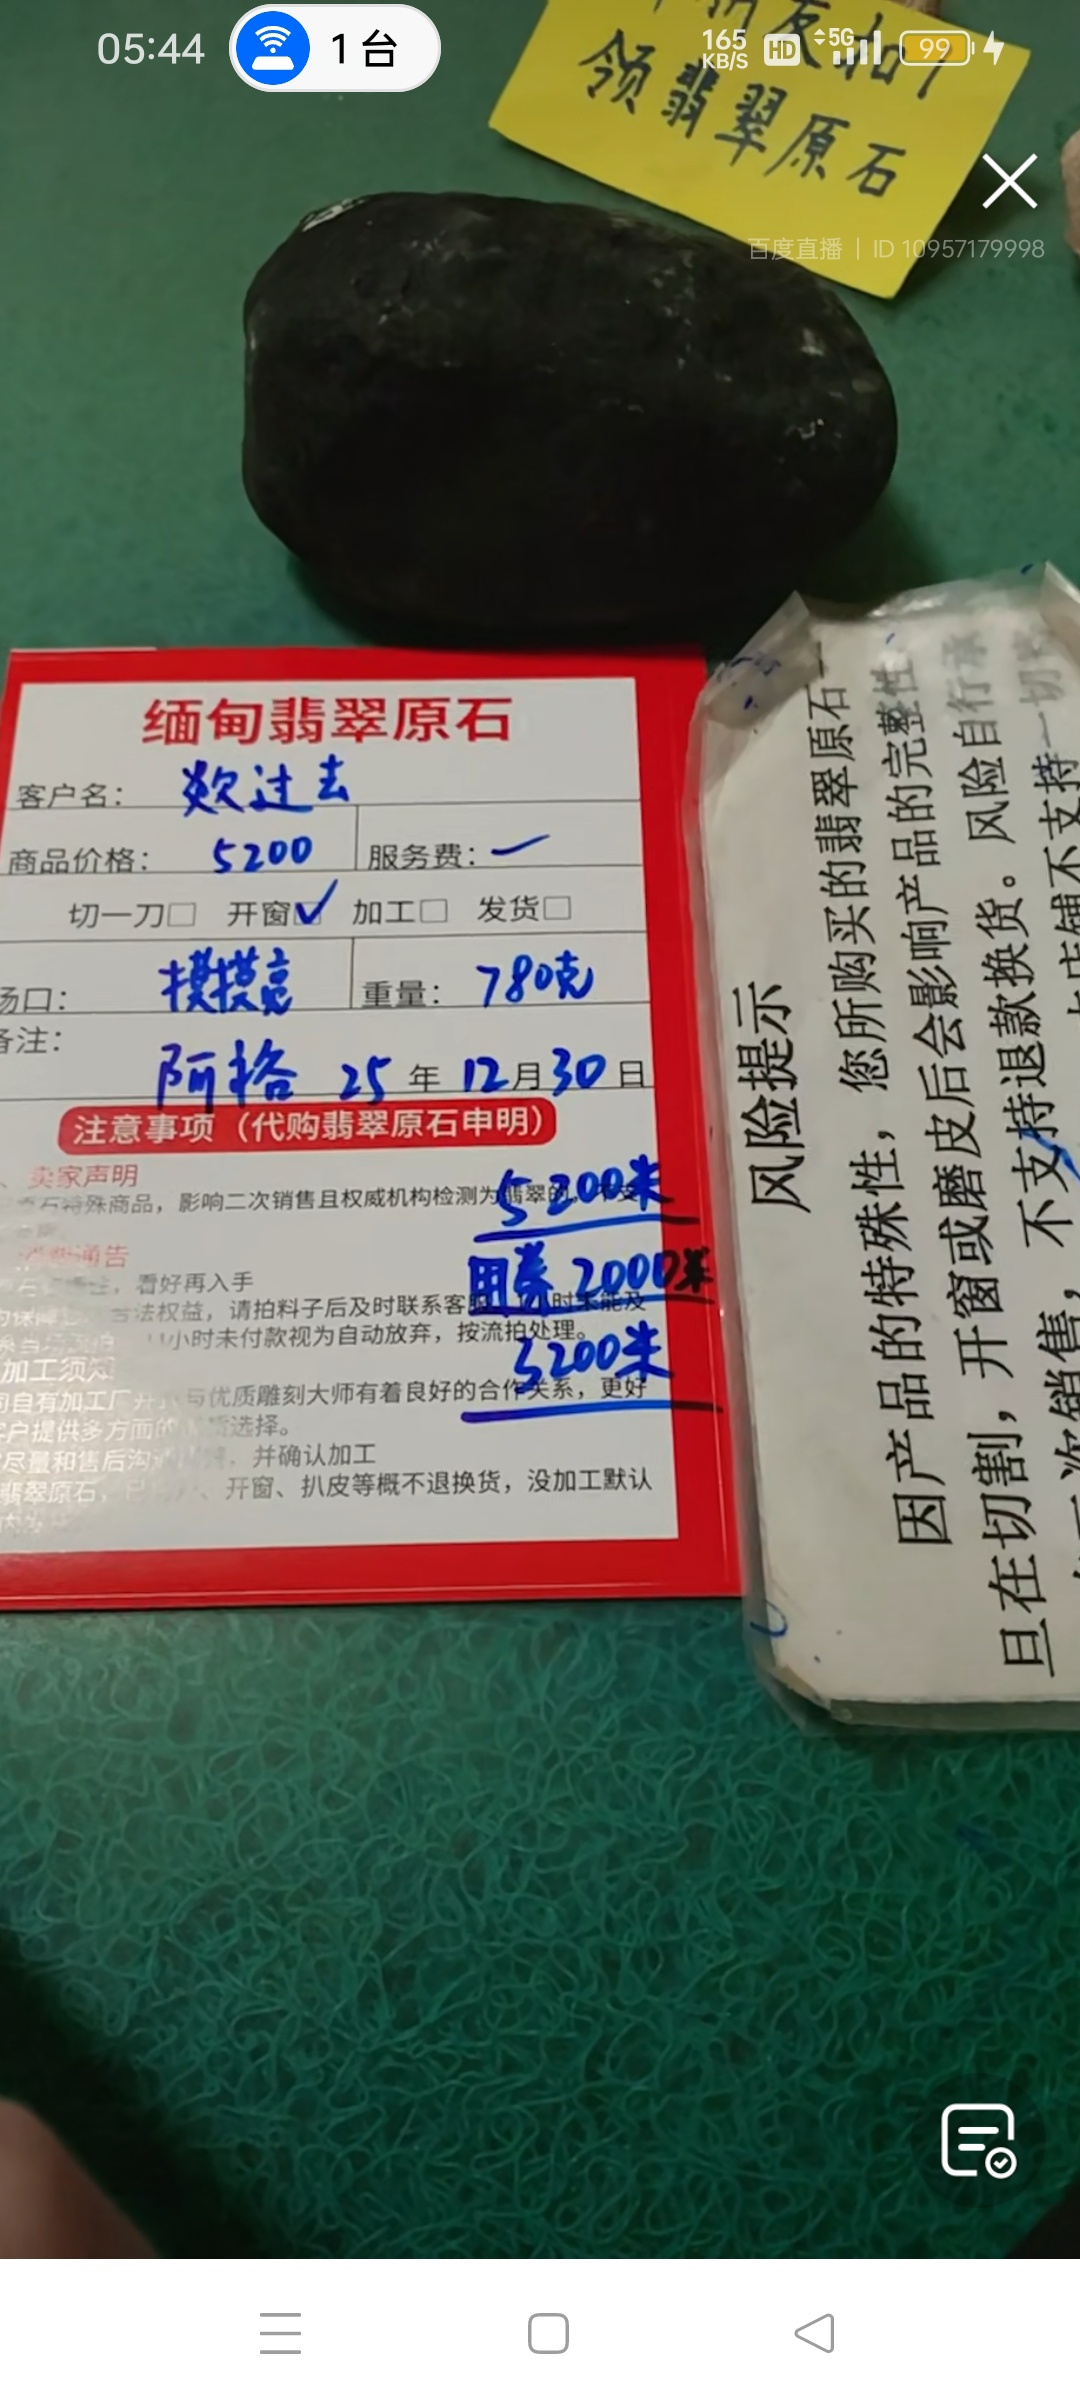 05:44
1 台
165 KB/S
HD
5G
99
领翡翠原石
百度直播 | ID 10957179998
缅甸翡翠原石
客户名： 欻过去
商品价格： 5200 服务费：一
切一刀□ 开窗☑ 加工□ 发货□
场口： 摸摸亮 重量： 780克
备注：
阿格 25 年 12 月 30 日
注意事项（代购翡翠原石申明）
卖家声明
石特殊商品，影响二次销售且权威机构检测为翡翠的，
5200米
通告
，看好再入手
用券 2000米
合法权益，请拍料子后及时联系客服
小时未付款视为自动放弃，按流拍处理。
3200米
加工须知
司自有加工厂并 与优质雕刻大师有着良好的合作关系，更好
客户提供多方面的 选择。
尽量和售后沟 ，并确认加工
翡翠原石， 、开窗、扒皮等概不退换货，没加工默认
风险提示
因产品的特殊性，您所购买的翡翠原石一
旦在切割，开窗或磨皮后会影响产品的完整性
二次销售，不支持退款换货。风险自行承
店铺不支持一切